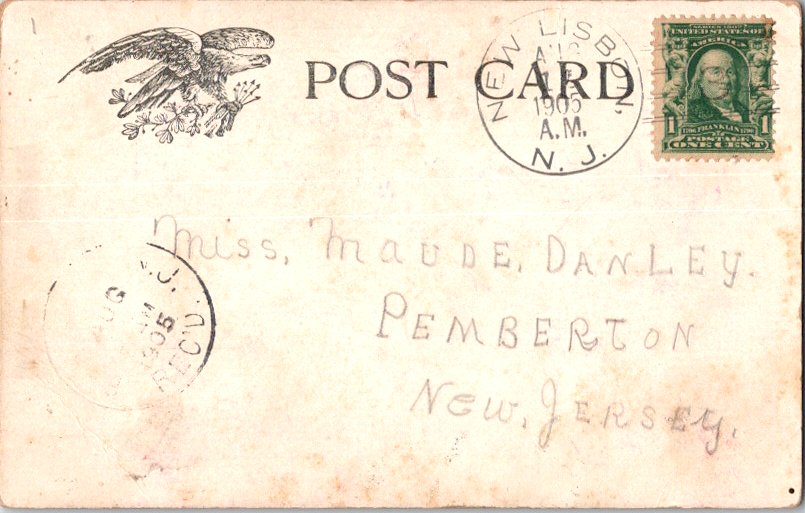 1
POST CARD
NEW LISBON,
AUG
1905
A.M.
N. J.
SERIES 1902
UNITED STATES OF
AMERICA
1 1706 FRANKLIN 1790 1
POSTAGE
ONE CENT
Miss, MAUDE, DANLEY.
PEMBERTON
NEW, JERSEY,
N.J.
AUG
AM
1905
REC'D.